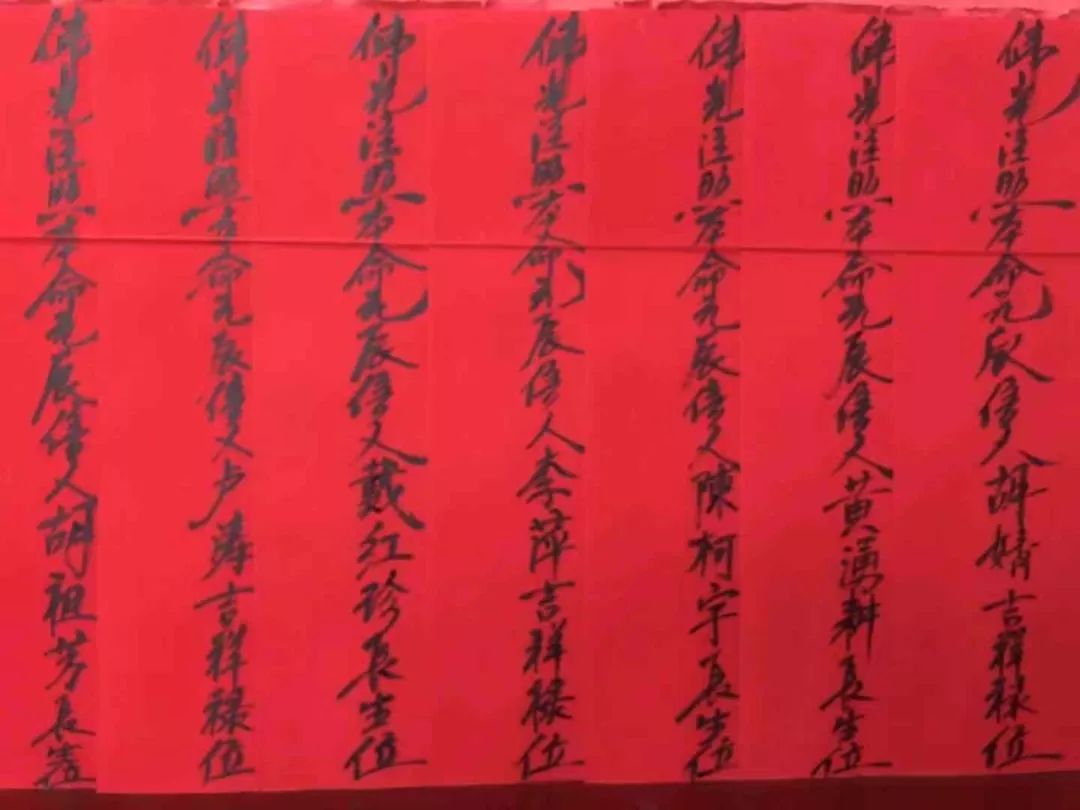 佛光注照本命元辰信人胡婧吉祥禄位
佛光注照本命元辰信人黄满耕長生位
佛光注照本命元辰信人陳柯宇長生位
佛光注照本命元辰信人李萍吉祥禄位
佛光注照本命元辰信人戴红珍長生位
佛光注照本命元辰信人卢萍吉祥禄位
佛光注照本命元辰信人胡祖芳長生位